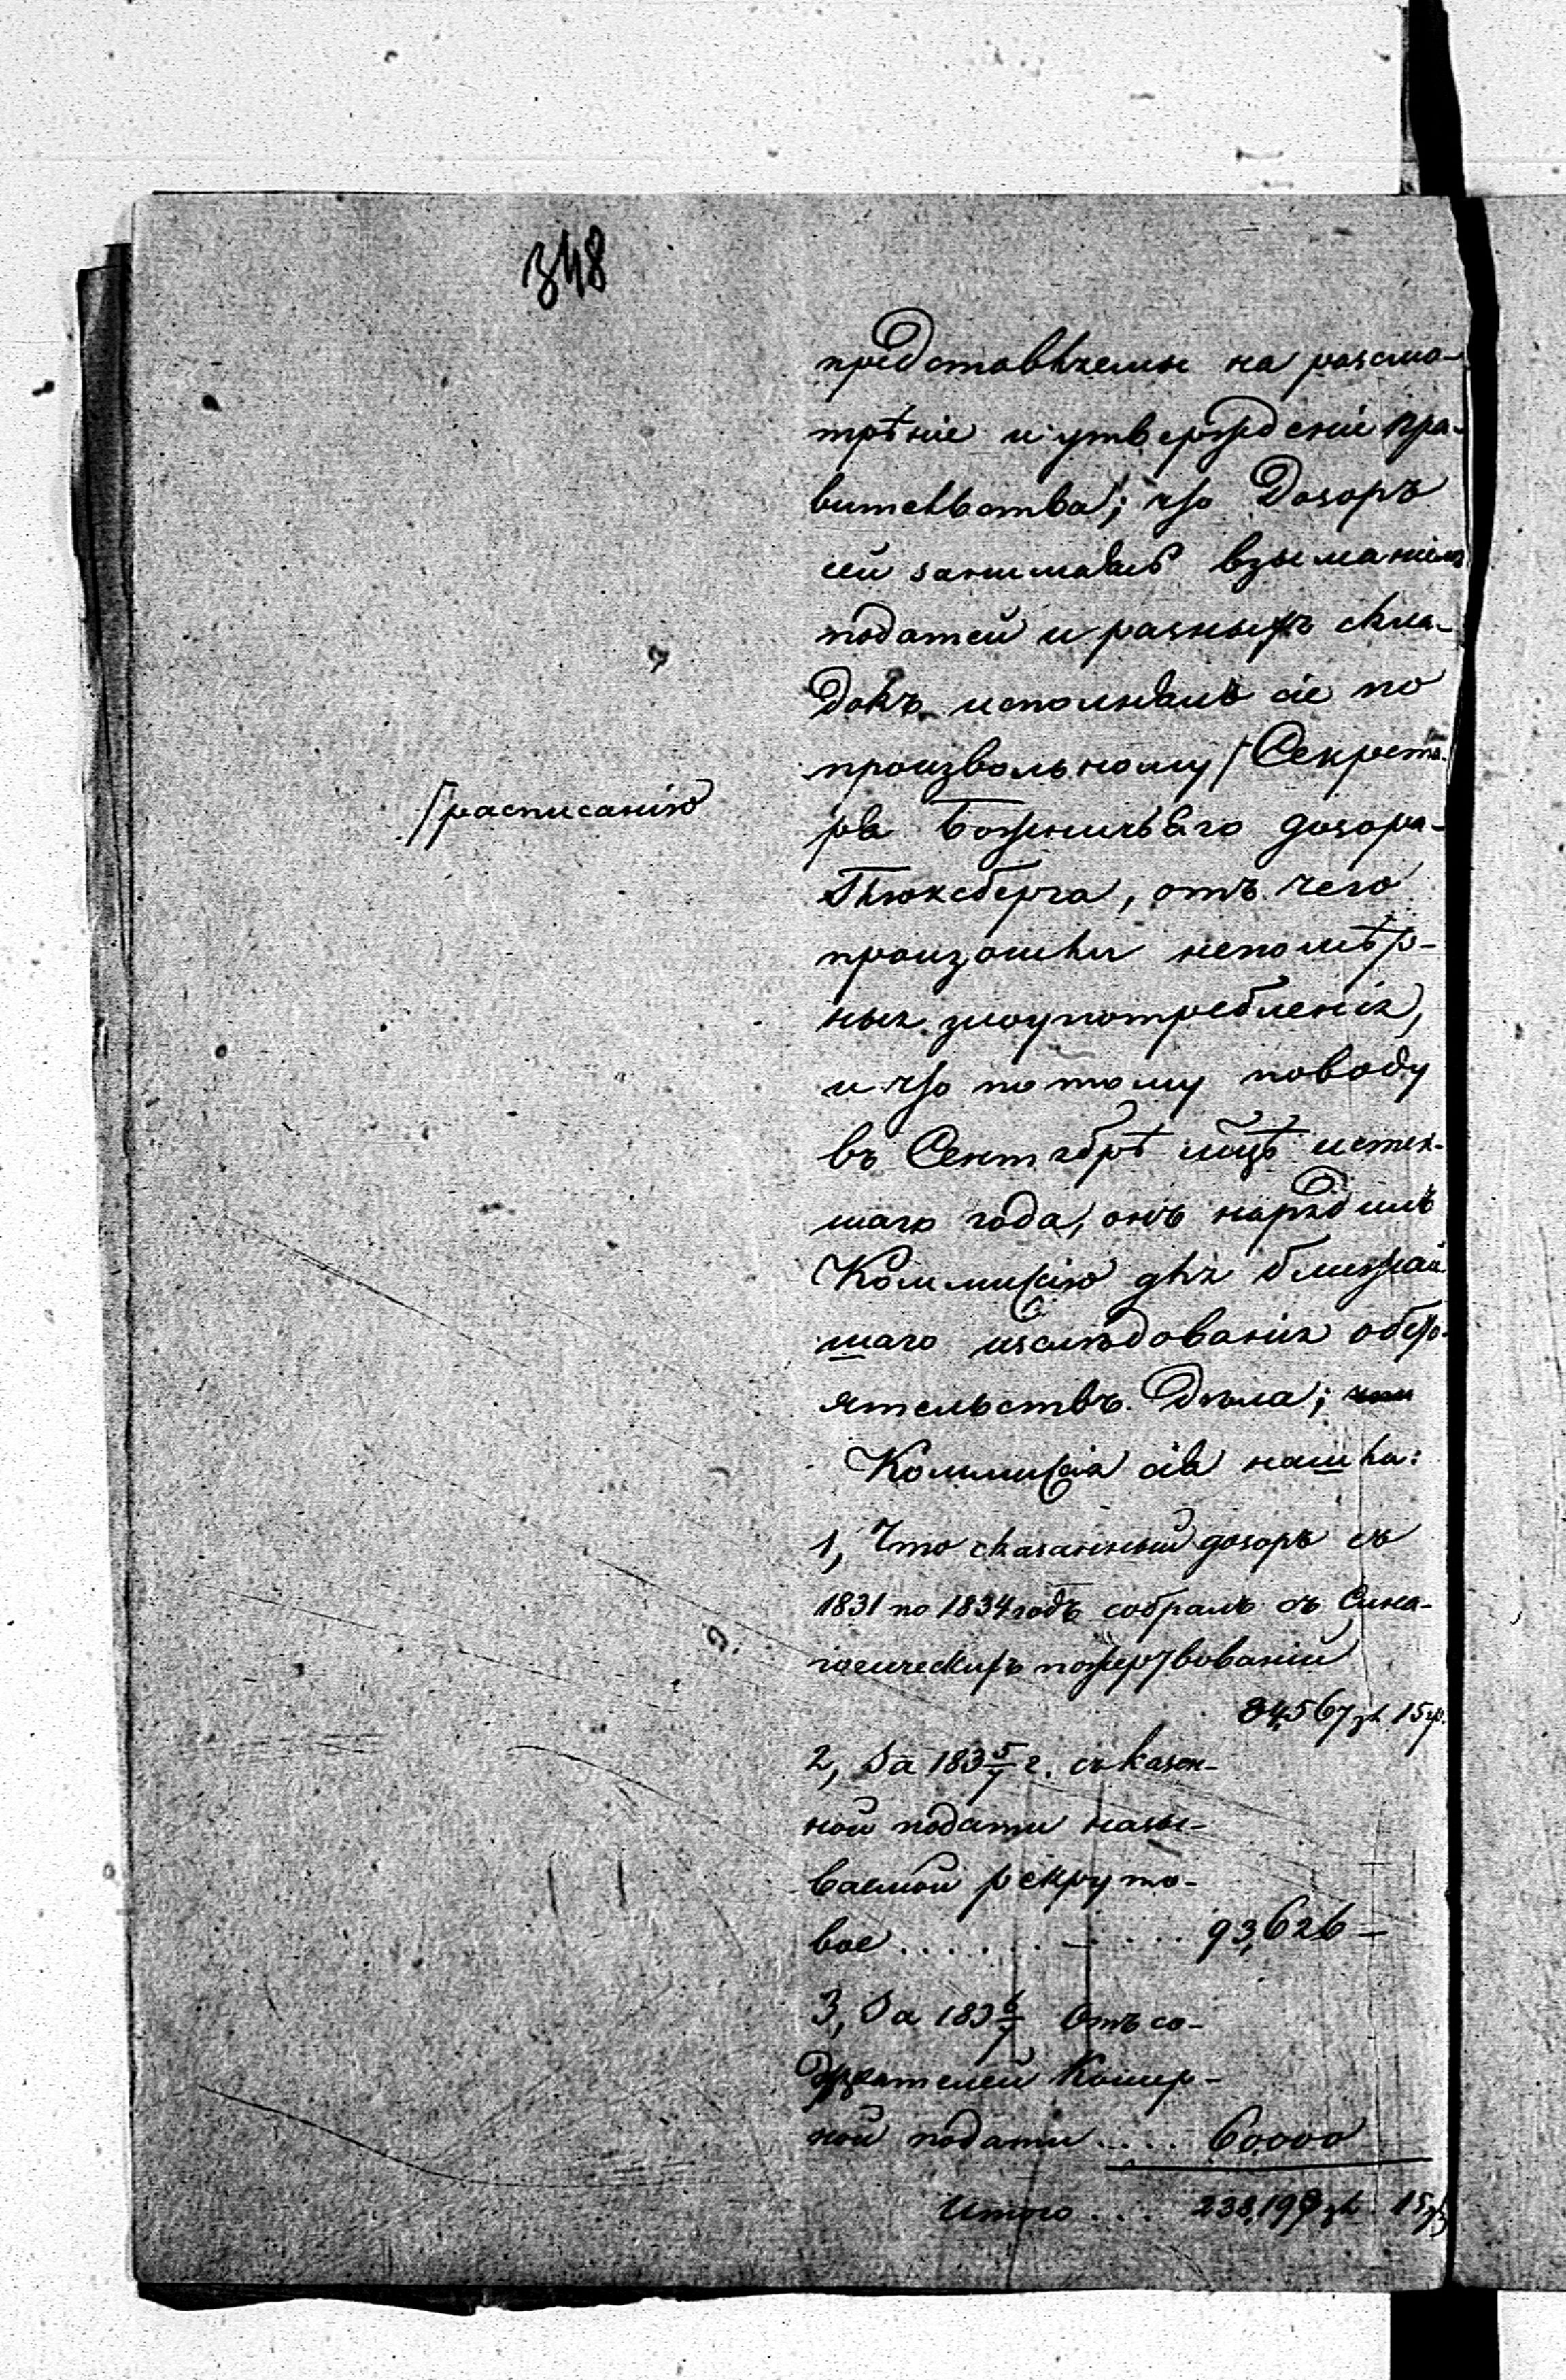 348
представляемы на разсмо-
трѣніе и утвержденіе пра-
вительства; что Дозоръ
сей занимаясь взыманіемъ
податей и разныхъ скла-
докъ исполнялъ сіе по
произвольному / Секрета-
ря Божничьяго дозора-
Глюксберга, отъ чего
произошли непомѣр-
ныя злоупотребленія,
и что по тому поводу
въ Сентябрѣ мцѣ истек-
шаго года, онъ нарядилъ
Коммиссію для ближай-
шаго изслѣдованія обсто-
ятельствъ дѣла;
Коммиссія сія нашла:
1, Что сказанный дозоръ съ
1831 по 1834 годъ собралъ съ Сина-
гогическихъ пожертвованій
84,567 зл 15 гр.
2, За 183 5/7 г. съ казен-
ной подати назы-
ваемой рекруто-
вое . . . . . . . . . . 93,626 —
3, За 183 6/7 Отъ со-
держателей Кошер-
ной подати . . . . 60000
Итого . . . 238,193 зл. 15 гр
/ расписанію